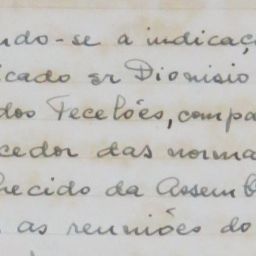 ndo-se a indicaç
icado sr Dionisio
dos Tecelões, compa
cedor das norma
hecido da Assemb
as reuniões do